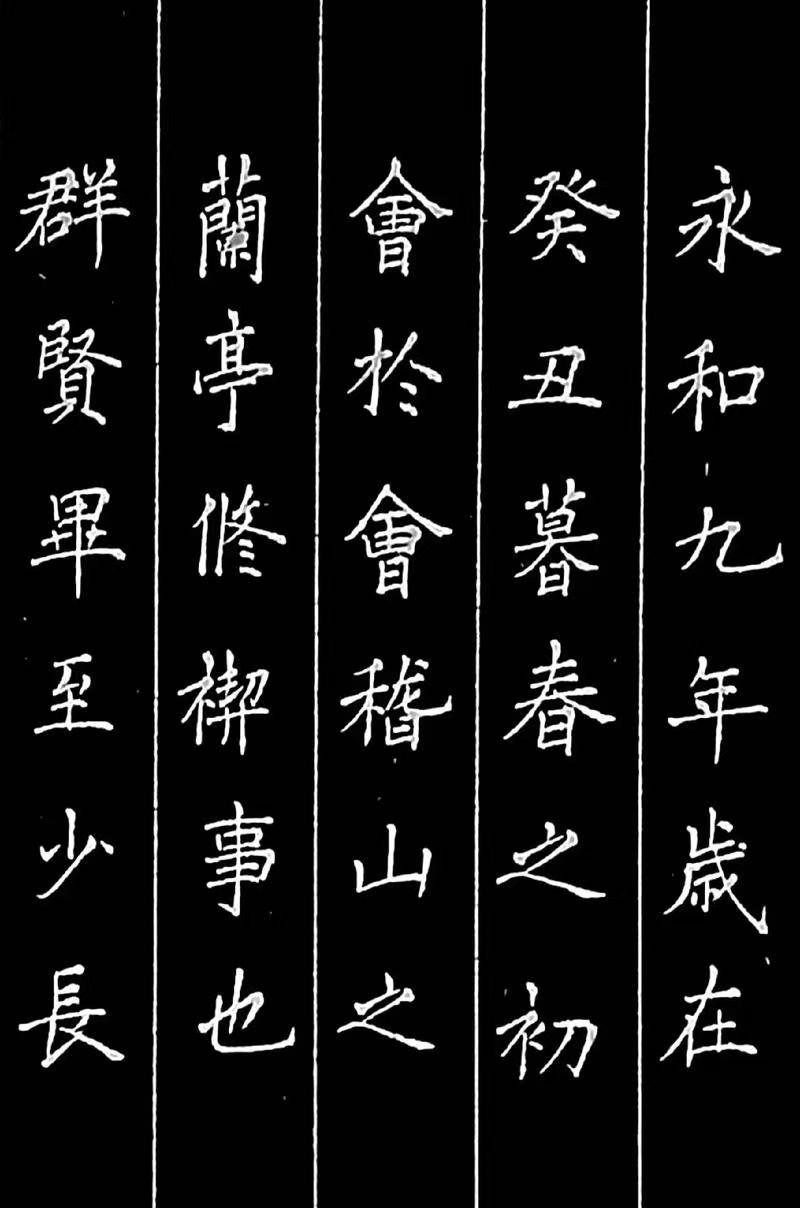 永和九年歲在
癸丑暮春之初
會於會稽山之
蘭亭修禊事也
群賢畢至少長